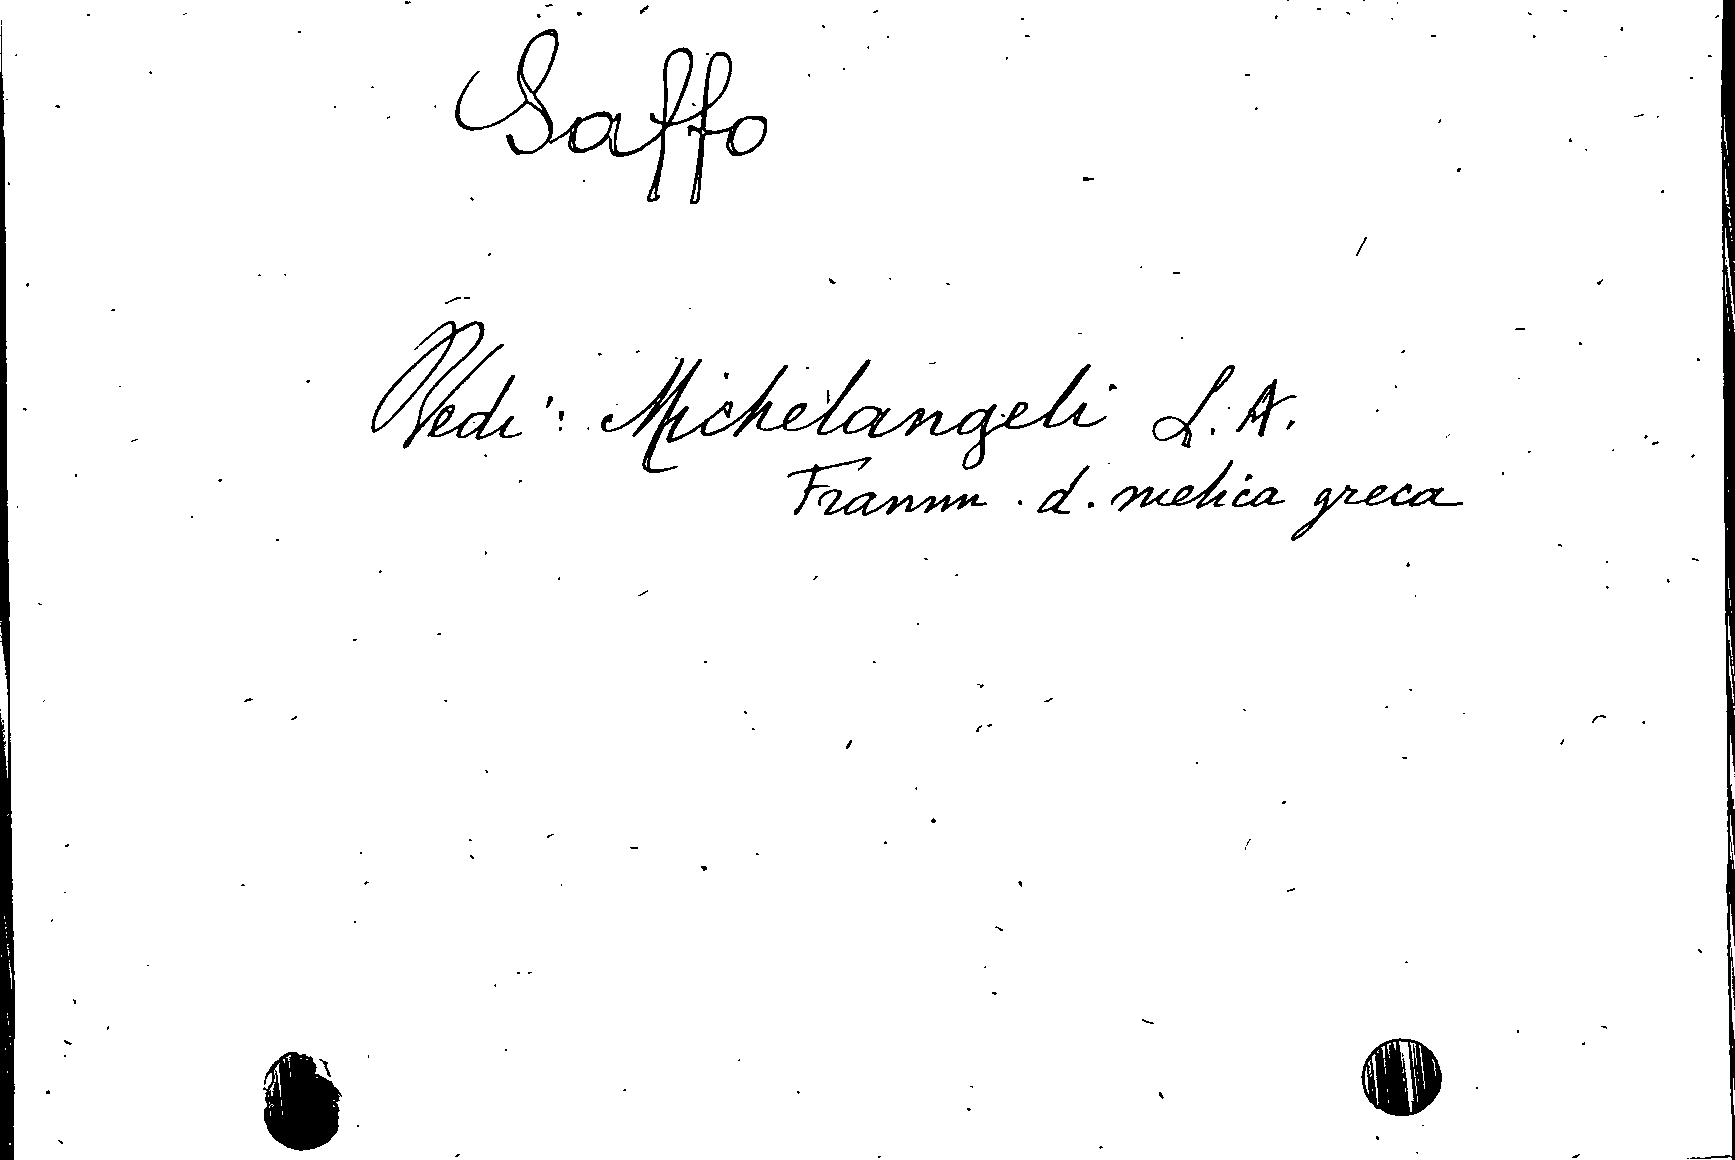 Saffo
Vedi: Michelangeli L. A.
Framm. d. melica greca